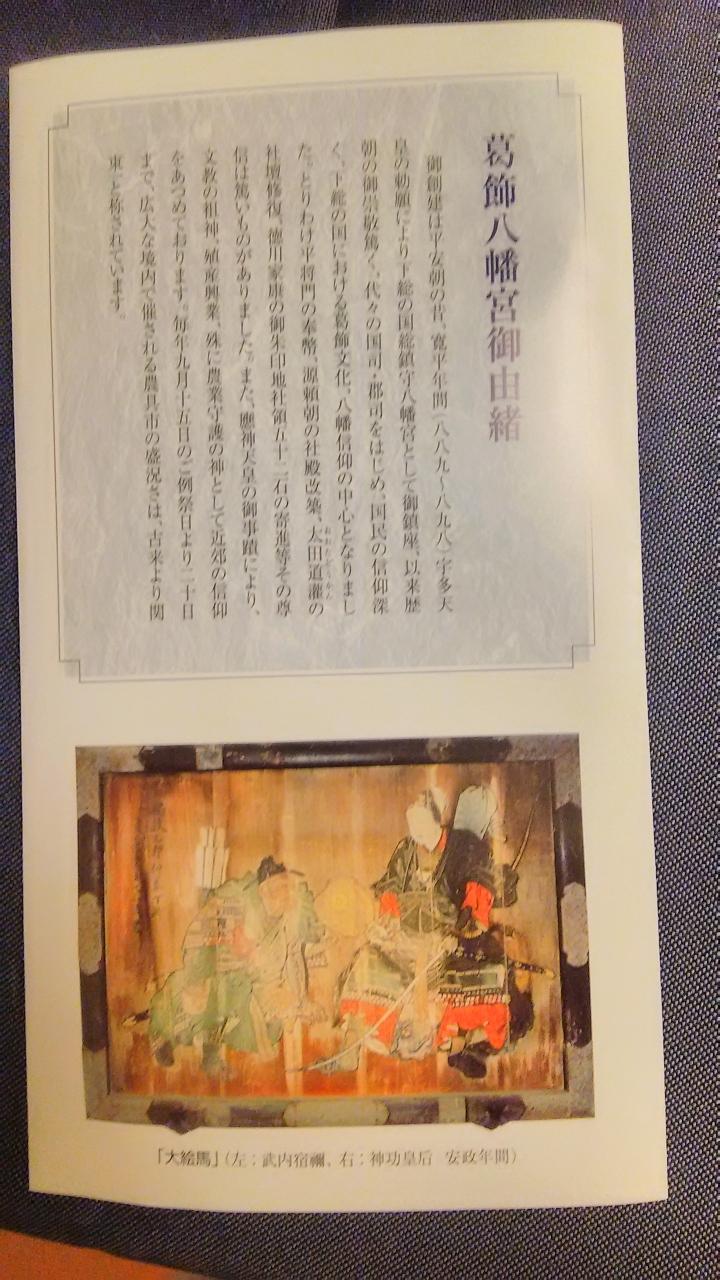 葛飾八幡宮御由緒
御創建は平安朝の昔、寛平年間(八八九〜八九八)宇多天
皇の勅願により下総の国総鎮守八幡宮として御鎮座、以来歴
朝の御崇敬篤く、代々の国司・郡司をはじめ、国民の信仰深
く、下総の国における葛飾文化、八幡信仰の中心となりまし
た。とりわけ平将門の奉幣、源頼朝の社殿改築、太田道灌の
おおたどうかん
社壇修復、徳川家康の御朱印地社領五十二石の寄進等その尊
信は篤いものがありました。また、應神天皇の御事蹟により、
文教の祖神、殖産興業、殊に農業守護の神として近郊の信仰
をあつめております。毎年九月十五日のご例祭日より二十日
まで、広大な境内で催される農具市の盛況さは、古来より関
東一と称されています。
「大絵馬」(左:武内宿禰、右:神功皇后 安政年間)